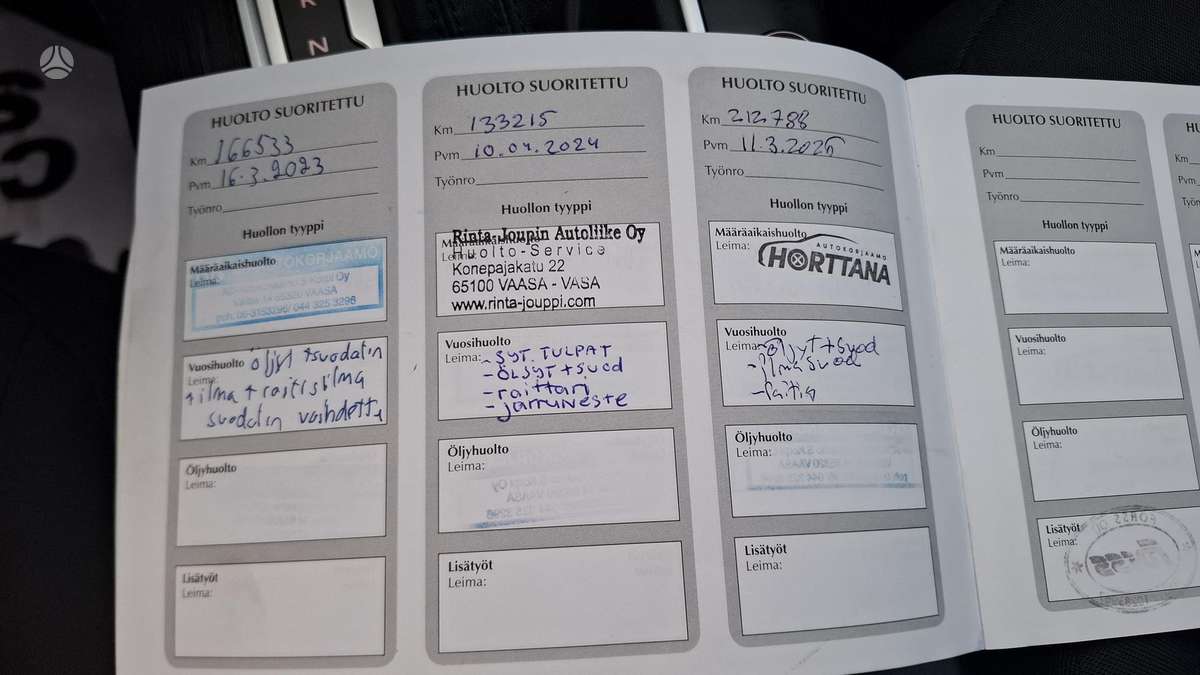 R
N
HUOLTO SUORITETTU
Km 166533
Pvm 16.3.2023
Työnro
Huollon tyyppi
Määräaikaishuolto
Leima:
TOKORJAAMO
Oy
65320 VAASA
puh. 06-3153296/ 044 325 3296
Vuosihuolto öljyt +suodatin
Leima:
+ilma + raitisilma
suodatin vaihdettu
Öljyhuolto
Leima:
Lisätyöt
Leima:
HUOLTO SUORITETTU
Km 133215
Pvm 10.04.2024
Työnro
Huollon tyyppi
Rinta-Joupin Autoliike Oy
Määräaikaishuolto
Huolto-Service
Leima:
Konepajakatu 22
65100 VAASA - VASA
www.rinta-jouppi.com
Vuosihuolto
Leima:
- SYT. TULPAT
- ÖLJYT + SUOD
- raittari
- jarruneste
Öljyhuolto
Leima:
Lisätyöt
Leima:
HUOLTO SUORITETTU
Km 212788
Pvm 11.3.2025
Työnro
Huollon tyyppi
Määräaikaishuolto
Leima:
AUTOKORJAAMO
HORTTANA
Vuosihuolto
Leima:
- öljyt + suod
- ilmasuod
Öljyhuolto
Leima:
Lisätyöt
Leima:
HUOLTO SUORITETTU
Km
Pvm
Työnro
Huollon tyyppi
Määräaikaishuolto
Leima:
Vuosihuolto
Leima:
Öljyhuolto
Leima:
Lisätyöt
Leima:
Km
Pvm